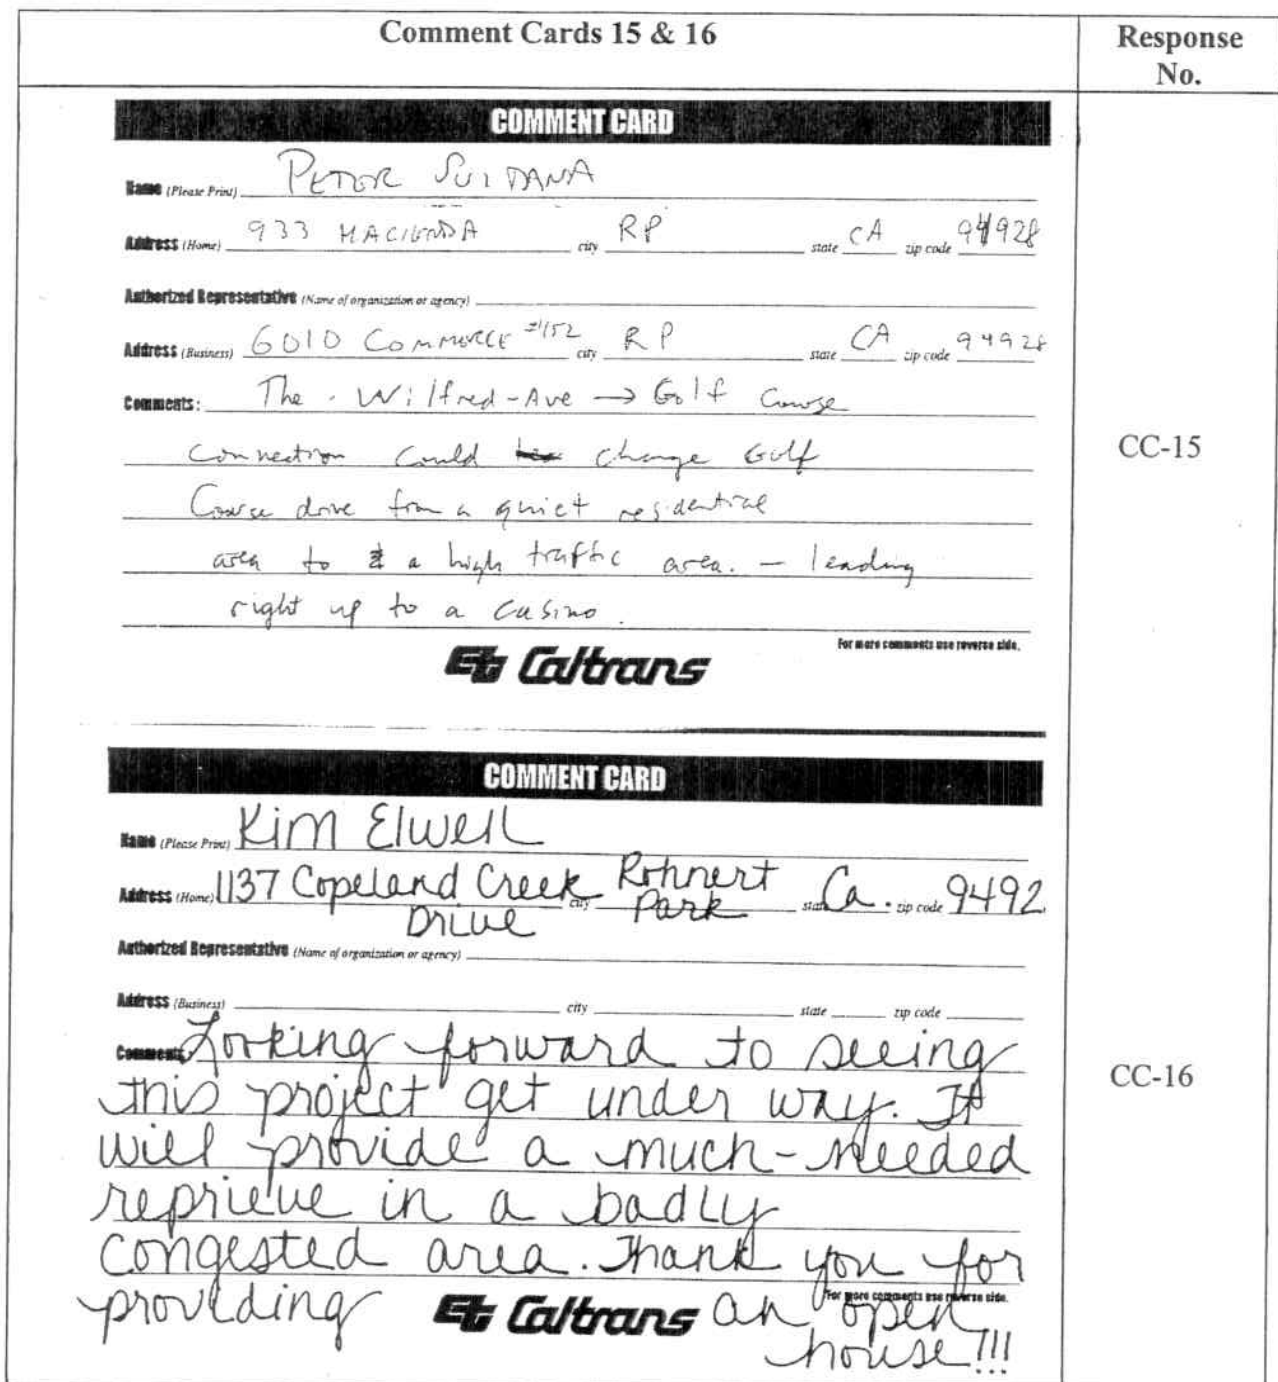 Comment Cards 15 & 16
Response
No.
COMMENT CARD
Name (Please Print) PETER SULTANA
Address (Home) 933 HACIENDA city RP state CA zip code 94928
Authorized Representative (Name of organization or agency)
Address (Business) 6010 COMMERCE #152 city RP state CA zip code 94928
Comments: The Wilfred-Ave → Golf Course
connection could change Golf
Course drive from a quiet residential
area to a high traffic area. — leading
right up to a casino.
For more comments use reverse side.
Caltrans
CC-15
COMMENT CARD
Name (Please Print) Kim Elwell
Address (Home) 1137 Copeland Creek city Rohnert state Ca. zip code 9492
Drive Park
Authorized Representative (Name of organization or agency)
Address (Business) city state zip code
Comments: Looking forward to seeing
this project get under way. It
will provide a much-needed
reprieve in a badly
congested area. Thank you for
For more comments use reverse side.
providing Caltrans an open
house!!!
CC-16